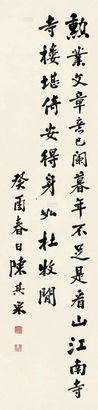 勳業文章意已闌暮年不足是看山江南寺
寺樓堪倚安得身如杜牧閒
癸酉春日陳其采